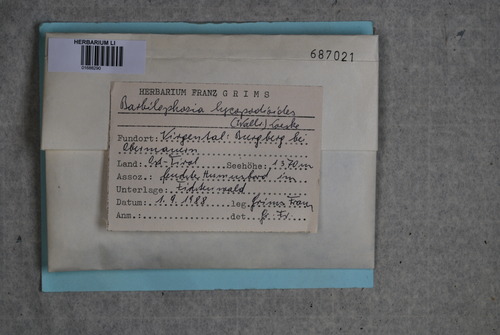 HERBARIUM LI
687021
HERBARIUM FRANZ GRIMS
Barbilophozia lycopodioides
(Wallr.) Loeske
Fundort: Virgental: Burgberg bei
Obermauern
Land: Ost-Tirol Seehöhe: 1370m
Assoz.: feuchter Humusboden im
Unterlage: Fichtenwald
Datum: 1.9.1988 leg. Grims Franz
Anm.: det. G. Fr.